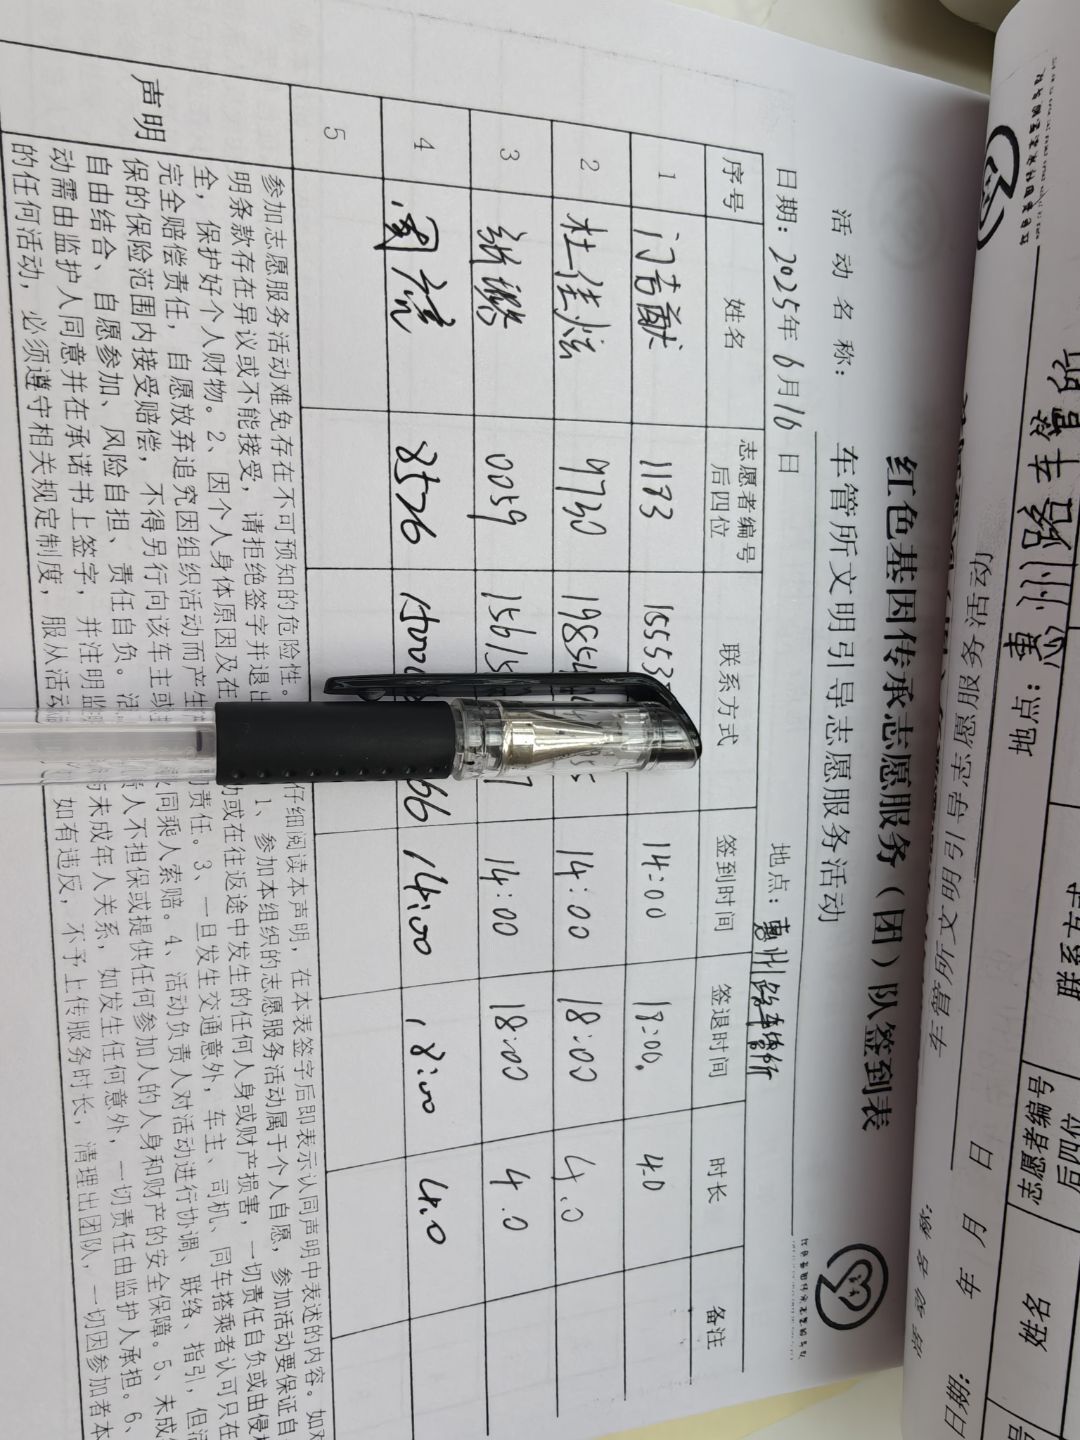 红色基因传承志愿服务（团）队签到表
活动名称： 车管所文明引导志愿服务活动
日期：2025年6月16日 地点：惠州路车管所
序号 姓名 志愿者编号后四位 联系方式 签到时间 签退时间 时长 备注
1 门吉猷 1133 15553 14:00 18:00 4.0
2 杜佳炫 9730 19854 55 14:00 18:00 4.0
3 0059 15615 7 14:00 18:00 4.0
4 8576 1500 66 14:00 18:00 4.0
5
声明
仔细阅读本声明，在本表签字后即表示认同声明中表述的内容。如对
参加志愿服务活动难免存在不可预知的危险性。 1、参加本组织的志愿服务活动属于个人自愿，参加活动要保证自
明条款存在异议或不能接受，请拒绝签字并退出 动或在往返途中发生的任何人身或财产损害，一切责任自负或由侵
全，保护好个人财物。2、因个人身体原因及在 责任。3、一旦发生交通意外，车主、司机、同车搭乘者认可只在
完全赔偿责任，自愿放弃追究因组织活动而产生 同乘人索赔。4、活动负责人对活动进行协调、联络、指引，但
保的保险范围内接受赔偿，不得另行向该车主或 人不担保或提供任何参加人的人身和财产的安全保障。5、未成
自由结合、自愿参加、风险自担、责任自负。活 与未成年人关系，如发生任何意外，一切责任由监护人承担。6、
动需由监护人同意并在承诺书上签字，并注明监 如有违反，不予上传服务时长，清理出团队，一切因参加者本
的任何活动，必须遵守相关规定制度，服从活动
车管所文明引导志愿服务活动
地点：惠州路车管所
日期： 年 月 日
姓名 志愿者编号后四位 联系方式